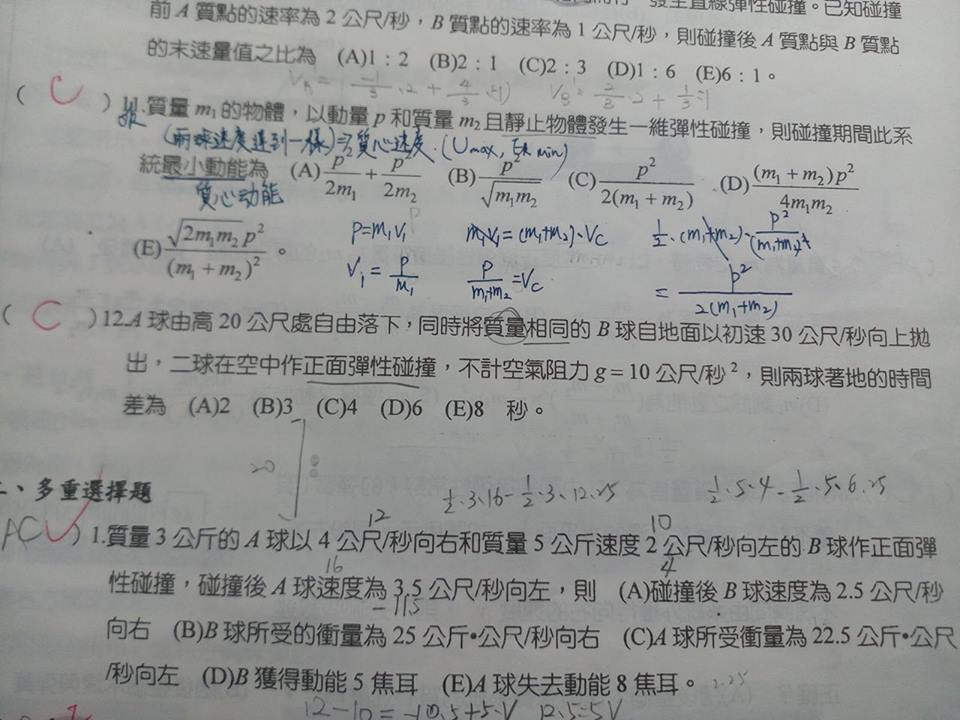 發生直線彈性碰撞。已知碰撞
前 A 質點的速率為 2 公尺/秒，B 質點的速率為 1 公尺/秒，則碰撞後 A 質點與 B 質點
的末速量值之比為 (A)1：2 (B)2：1 (C)2：3 (D)1：6 (E)6：1。
( C ) 11.質量 m₁ 的物體，以動量 p 和質量 m₂ 且靜止物體發生一維彈性碰撞，則碰撞期間此系
(兩球速度達到一樣)⇒質心速度. (Umax, Ek min)
統最小動能為 (A) p²/2m₁ + p²/2m₂ (B) p²/√m₁m₂ (C) p²/2(m₁+m₂) (D) (m₁+m₂)p²/4m₁m₂
質心动能
(E) √2m₁m₂ p²/(m₁+m₂)² 。
P=m₁V₁ m₁V₁=(m₁+m₂)·Vc ½·(m₁+m₂)·p²/(m₁+m₂)²
V₁=p/m₁ p/m₁+m₂=Vc = p²/2(m₁+m₂)
( C ) 12.A 球由高 20 公尺處自由落下，同時將質量相同的 B 球自地面以初速 30 公尺/秒向上拋
出，二球在空中作正面彈性碰撞，不計空氣阻力 g＝10 公尺/秒²，則兩球著地的時間
差為 (A)2 (B)3 (C)4 (D)6 (E)8 秒。
20
½·3·16-½·3·12.25 ½·5·4-½·5·6.25
二、多重選擇題
12 10
AC ) 1.質量 3 公斤的 A 球以 4 公尺/秒向右和質量 5 公斤速度 2 公尺/秒向左的 B 球作正面彈
16 4
性碰撞，碰撞後 A 球速度為 3.5 公尺/秒向左，則 (A)碰撞後 B 球速度為 2.5 公尺/秒
向右 (B)B 球所受的衝量為 25 公斤•公尺/秒向右 (C)A 球所受衝量為 22.5 公斤•公尺
/秒向左 (D)B 獲得動能 5 焦耳 (E)A 球失去動能 8 焦耳。
2.25
12-10=-10.5+5·V 12.5=5V